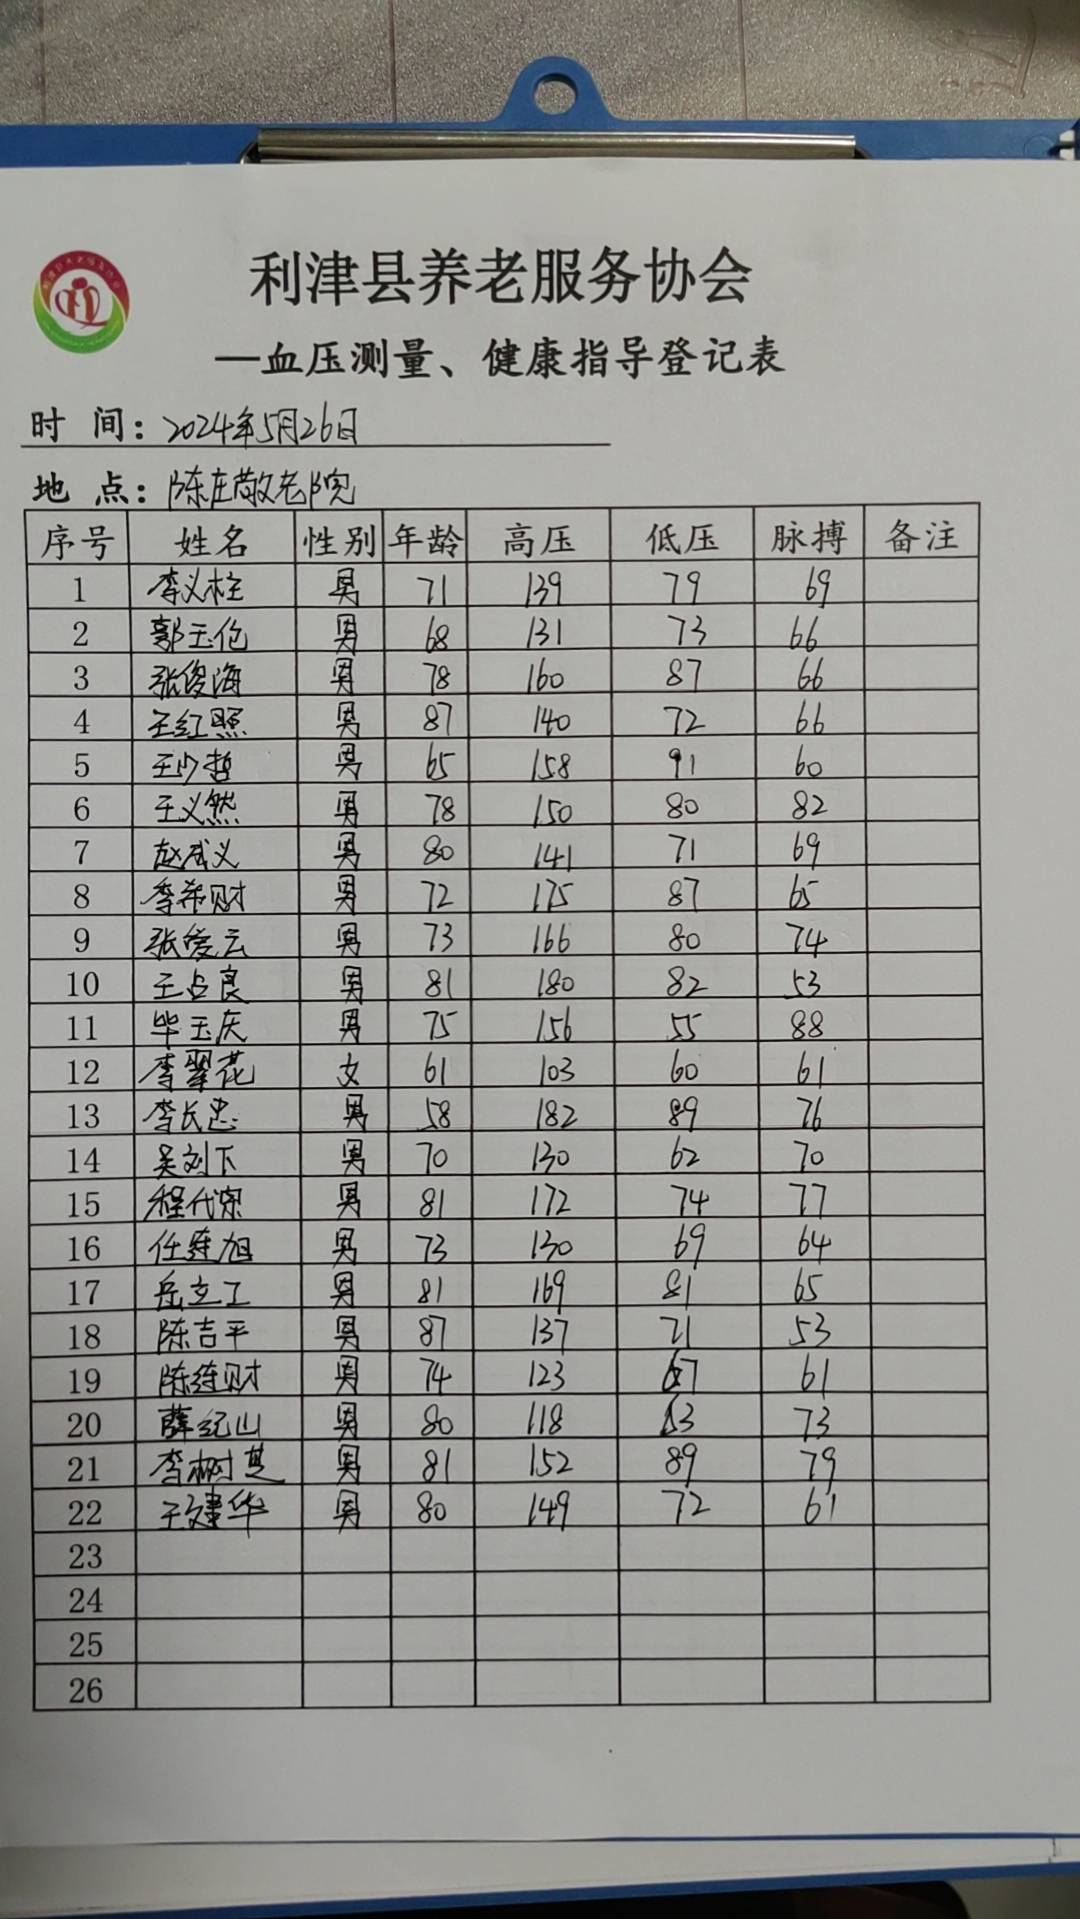 利津县养老服务协会
—血压测量、健康指导登记表
时 间：2024年5月26日
地 点：陈庄敬老院
序号 姓名 性别 年龄 高压 低压 脉搏 备注
1 李义柱 男 71 139 79 69
2 郭玉伦 男 68 131 73 66
3 张俊海 男 78 160 87 66
4 王红照 男 87 140 72 66
5 王少哲 男 65 158 91 60
6 王义然 男 78 150 80 82
7 赵成义 男 80 141 71 69
8 李希财 男 72 175 87 65
9 张爱云 男 73 166 80 74
10 王占良 男 81 180 82 53
11 毕玉庆 男 75 156 55 88
12 李翠花 女 61 103 60 61
13 李长忠 男 58 182 89 76
14 吴刘下 男 70 130 62 70
15 程代宗 男 81 172 74 77
16 任连旭 男 73 130 69 64
17 岳立工 男 81 169 81 65
18 陈吉平 男 87 137 71 53
19 陈连财 男 74 123 67 61
20 薛纪山 男 80 118 53 73
21 李树芝 男 81 152 89 79
22 王建华 男 80 149 72 61
23
24
25
26